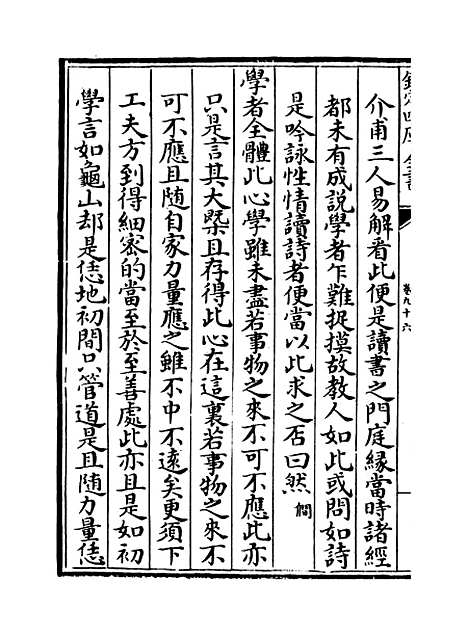 欽定四庫全書
卷九十六
介甫三人易解看此便是讀書之門庭緣當時諸經
都未有成說學者乍難捉摸故教人如此或問如詩
是吟詠性情讀詩者便當以此求之否曰然㽦
學者全體此心學雖未盡若事物之來不可不應此亦
只是言其大槩且存得此心在這裏若事物之來不
可不應且隨自家力量應之雖不中不遠矣更須下
工夫方到得細密的當至於至善處此亦且是如初
學言如龜山却是恁地初間只管道是且隨力量恁